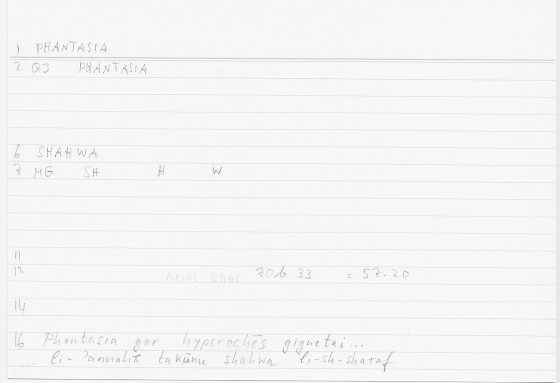 1 PHANTASIA
2 QJ PHANTASIA
6 SHAHWA
7 MG SH H W
11
12 Arist Rhet 70b 33 = 57.20
14
16 Phantasia gar hyperochēs gignetai...
... li-'annahā takūnu shahwa li-sh-sharaf